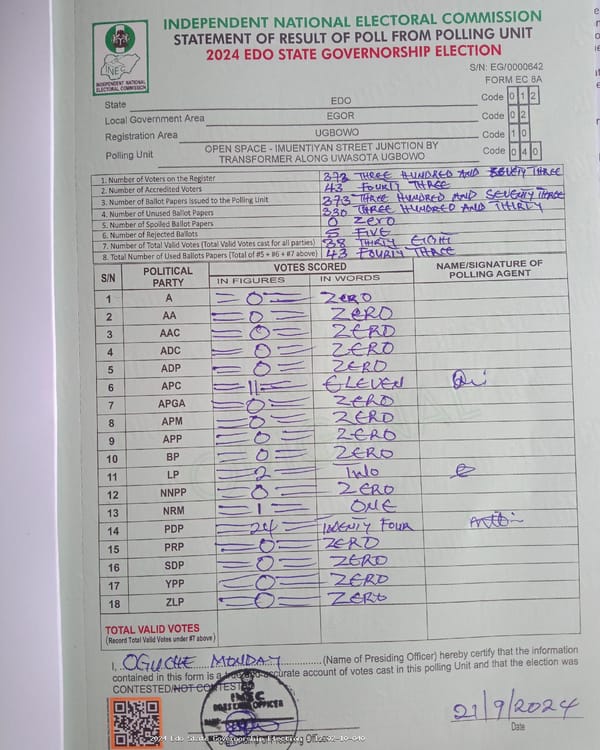 INDEPENDENT NATIONAL ELECTORAL COMMISSION
STATEMENT OF RESULT OF POLL FROM POLLING UNIT
2024 EDO STATE GOVERNORSHIP ELECTION
INEC
INDEPENDENT NATIONAL
ELECTORAL COMMISSION
S/N: EG/0000642
FORM EC 8A
State EDO Code 0 1 2
Local Government Area EGOR Code 0 2
Registration Area UGBOWO Code 1 0
Polling Unit OPEN SPACE - IMUENTIYAN STREET JUNCTION BY TRANSFORMER ALONG UWASOTA UGBOWO Code 0 4 0
1. Number of Voters on the Register 373 THREE HUNDRED AND SEVENTY THREE
2. Number of Accredited Voters 43 FOURTY THREE
3. Number of Ballot Papers Issued to the Polling Unit 373 THREE HUNDRED AND SEVENTY THREE
4. Number of Unused Ballot Papers 330 THREE HUNDRED AND THIRTY
5. Number of Spoiled Ballot Papers 0 ZERO
6. Number of Rejected Ballots 5 FIVE
7. Number of Total Valid Votes (Total Valid Votes cast for all parties) 38 THIRTY EIGHT
8. Total Number of Used Ballots Papers (Total of #5 + #6 + #7 above) 43 FOURTY THREE
S/N POLITICAL PARTY VOTES SCORED NAME/SIGNATURE OF POLLING AGENT
IN FIGURES IN WORDS
1 A 0 ZERO
2 AA 0 ZERO
3 AAC 0 ZERO
4 ADC 0 ZERO
5 ADP 0 ZERO
6 APC 11 ELEVEN
7 APGA 0 ZERO
8 APM 0 ZERO
9 APP 0 ZERO
10 BP 0 ZERO
11 LP 2 TWO
12 NNPP 0 ZERO
13 NRM 1 ONE
14 PDP 24 TWENTY FOUR
15 PRP 0 ZERO
16 SDP 0 ZERO
17 YPP 0 ZERO
18 ZLP 0 ZERO
TOTAL VALID VOTES
(Record Total Valid Votes under #7 above)
I, OGUCHE MONDAY (Name of Presiding Officer) hereby certify that the information
contained in this form is a accurate account of votes cast in this polling Unit and that the election was
CONTESTED/NOT CONTESTED
INEC
21/9/2024
Date
2024 Edo State Governorship Election